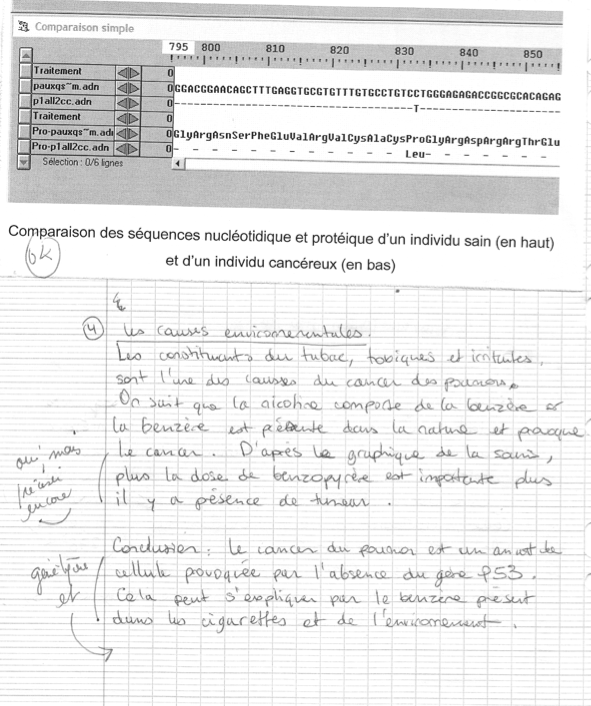 Comparaison simple
795 800 810 820 830 840 850
Traitement 0
pauxqs~m.adn 0 GGACGGAACAGCTTTGAGGTGCGTGTTTGTGCCTGTCCTGGGAGAGACCGGCGCACAGAG
p1all2cc.adn 0 -------------------------------------T----------------------
Traitement 0
Pro-pauxqs~m.adn 0 GlyArgAsnSerPheGluValArgValCysAlaCysProGlyArgAspArgArgThrGlu
Pro-p1all2cc.adn 0 - - - - - - - - - - - - Leu- - - - - - -
Sélection : 0/6 lignes
Comparaison des séquences nucléotidique et protéique d'un individu sain (en haut)
et d'un individu cancéreux (en bas)
ok
4 les causes environementales.
Les constituants du tabac, toxiques et irritants,
sont l'une des causes du cancer des poumons.
On sait que la nicotine comporte de la benzère
la benzère est présente dans la nature et provoque
le cancer. D'après le graphique de la souris,
plus la dose de benzopyrère est importante plus
il y a présence de tumeur.
oui, mais
préciser
encore
Conclusion : le cancer du poumon est un amat de
cellule povoquée par l'absence du gène p53.
Cela peut s'expliquer par le benzère présent
dans les cigarettes et de l'environement.
génétique
et